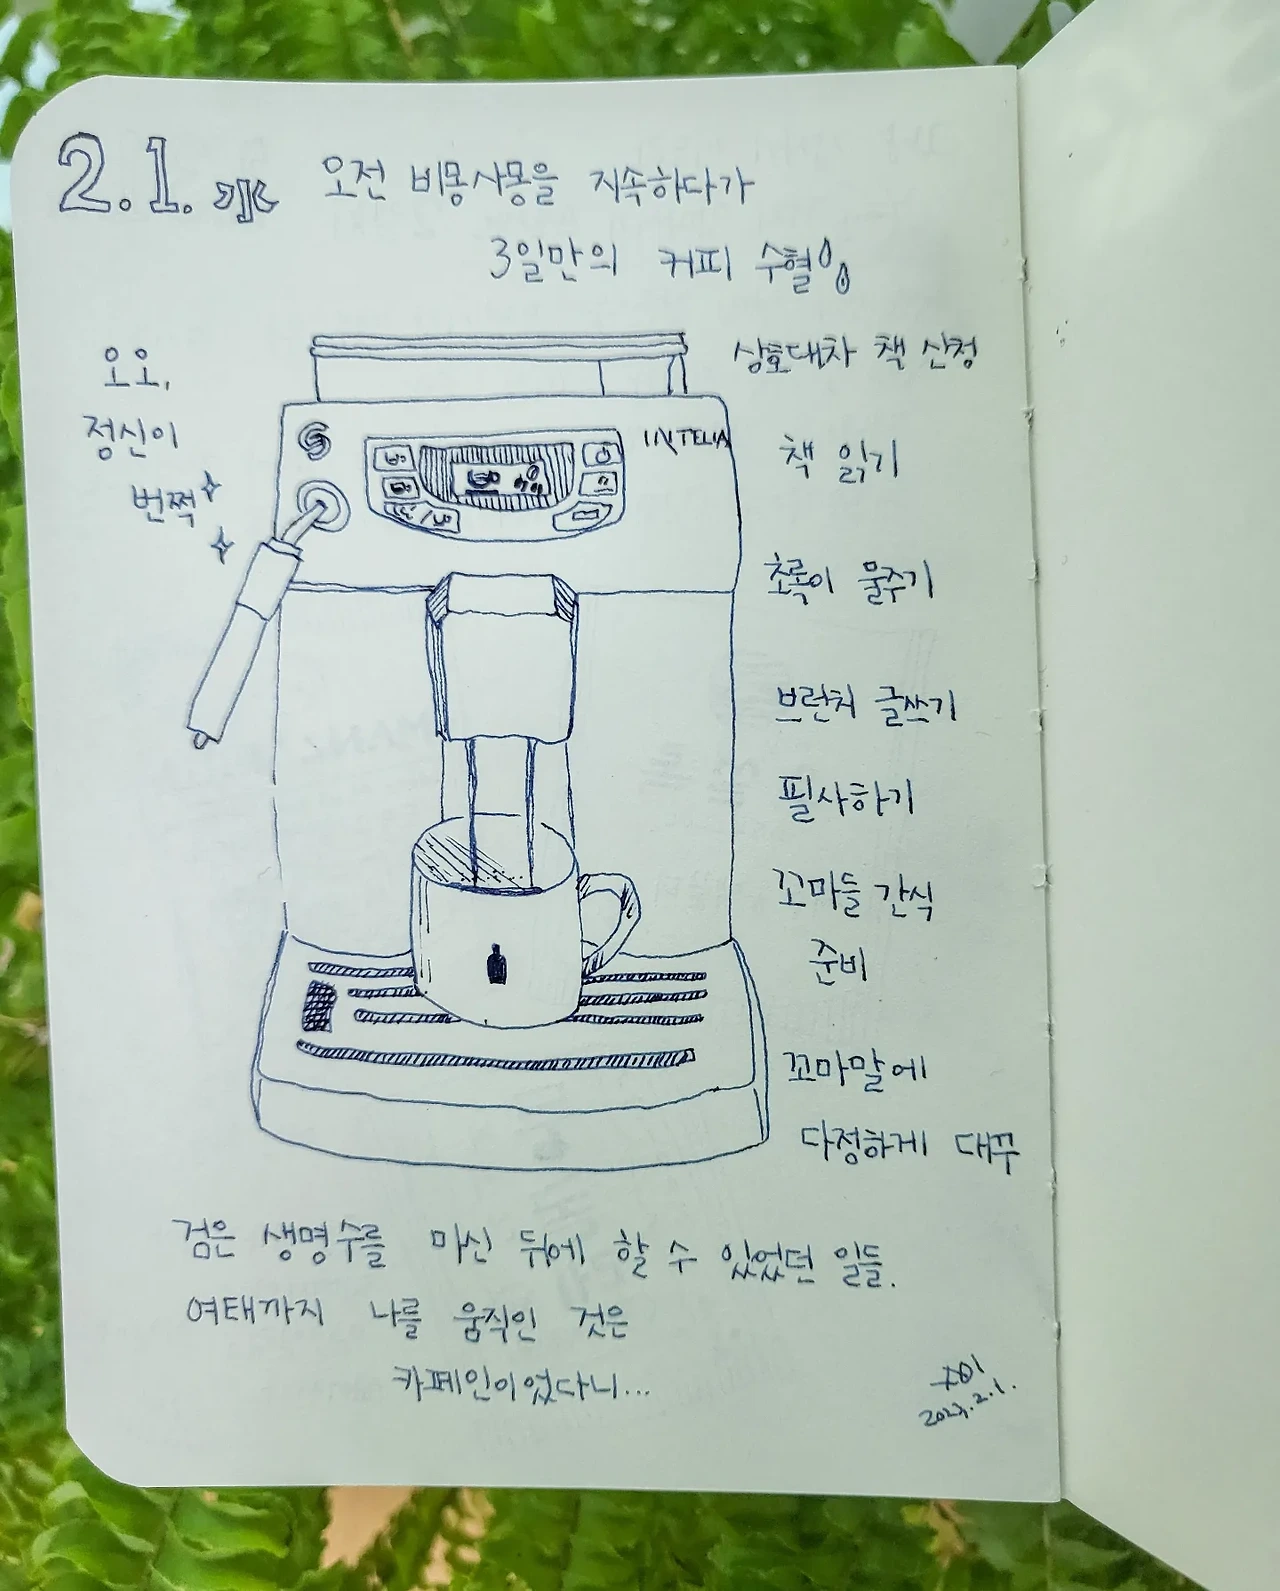 2.1. 水
오전 비몽사몽을 지속하다가
3일만의 커피 수혈
오오,
정신이
번쩍
INTELIA
상호대차 책 신청
책 읽기
초록이 물주기
브런치 글쓰기
필사하기
꼬마들 간식
준비
꼬마말에
다정하게 대꾸
검은 생명수를 마신 뒤에 할 수 있었던 일들.
여태까지 나를 움직인 것은
카페인이었다니...
2023.2.1.